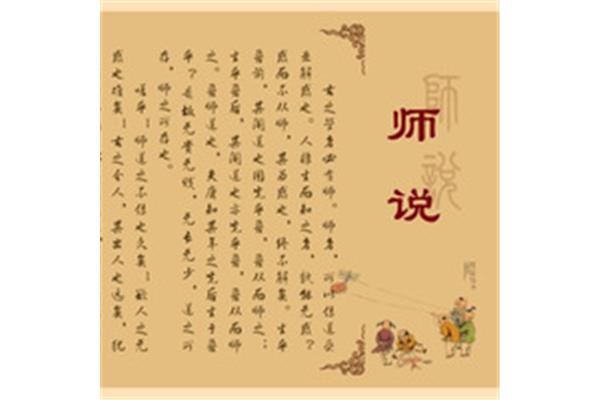 師説
师说
古之学者必有师。师者，所以传道受
业解惑也。人非生而知之者，孰能无惑？
惑而不从师，其为惑也，终不解矣。生乎
吾前，其闻道也固先乎吾，吾从而师之；
生乎吾后，其闻道也亦先乎吾，吾从而师
之。吾师道也，夫庸知其年之先后生于吾
乎？是故无贵无贱，无长无少，道之所
存，师之所存也。
嗟乎！师道之不传也久矣！欲人之无
惑也难矣！古之圣人，其出人也远矣，犹